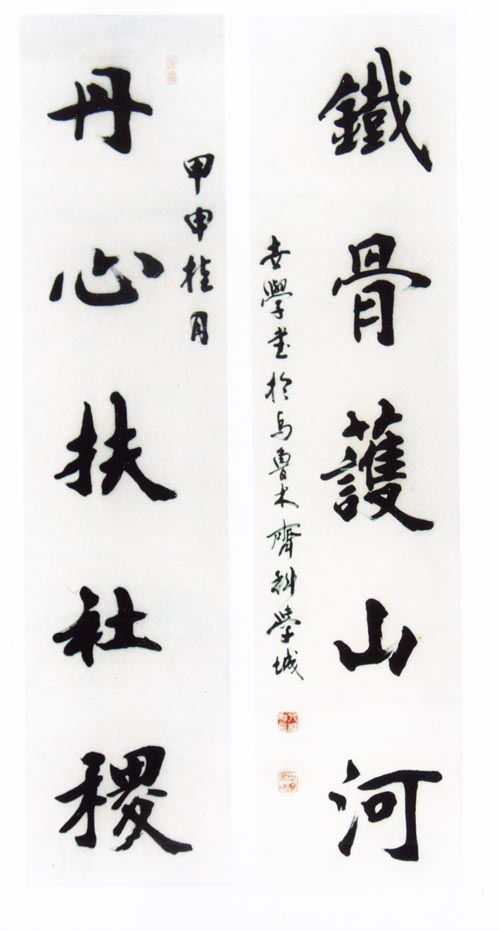 鐵骨護山河
世學書於烏魯木齊科學城
甲申桂月
丹心扶社稷